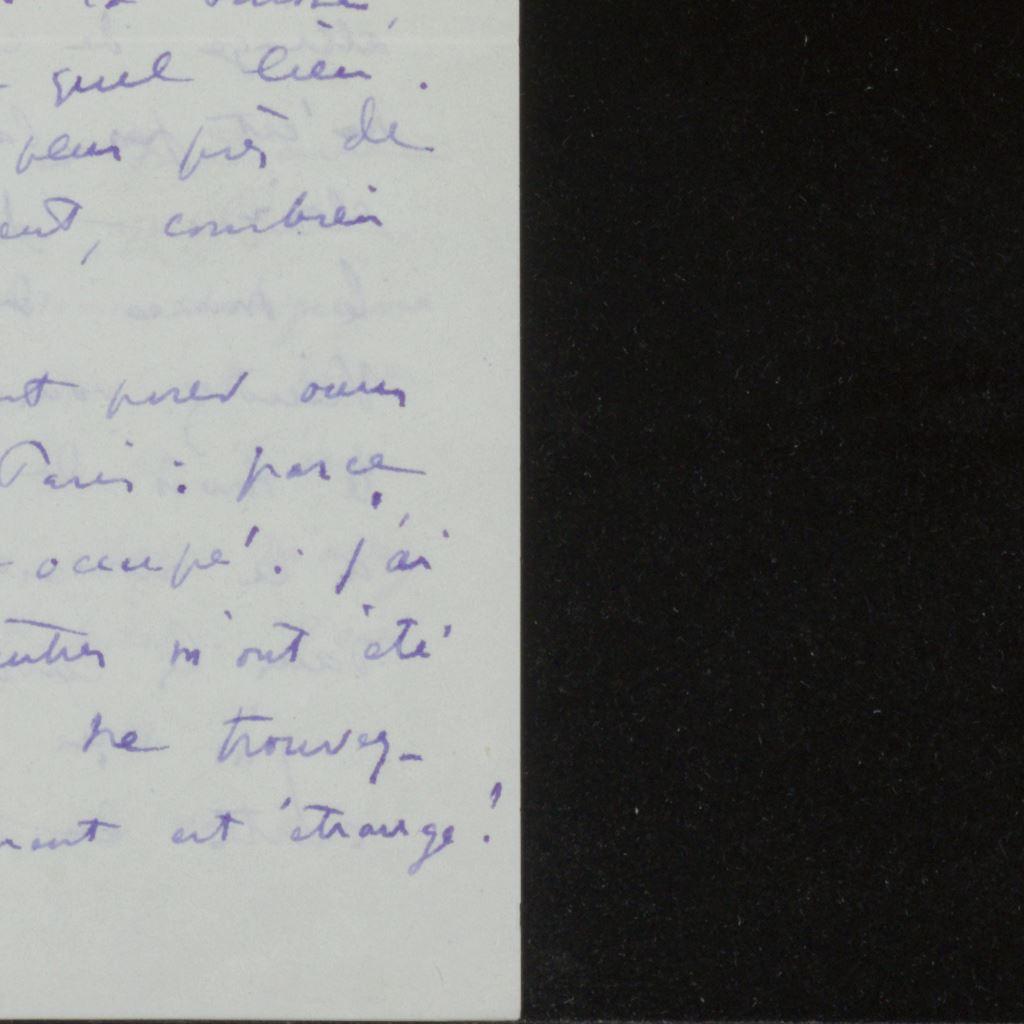 quel lien.
peu près de
ent, combien
nt
Paris : parce
occupé. j'ai
m'ont été
ne trouvez-
ment est étrange!